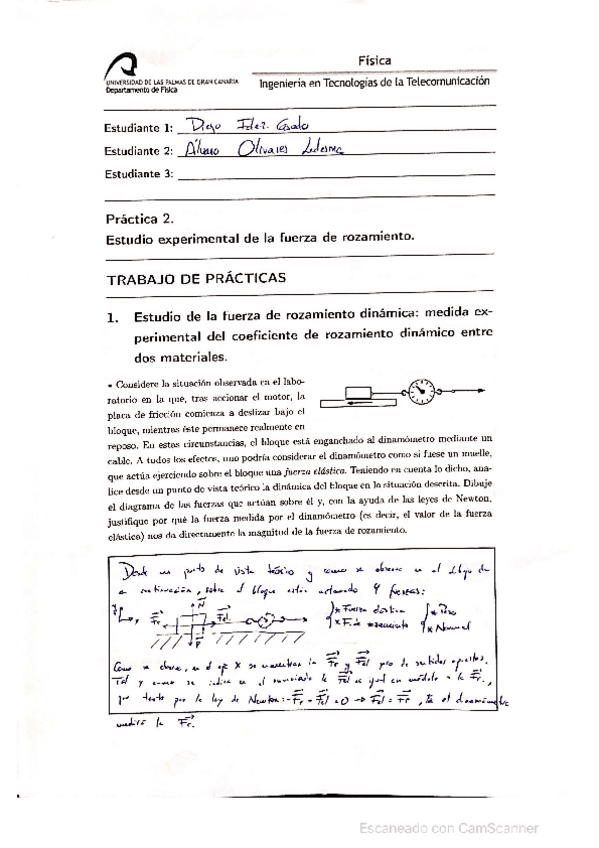 Física
UNIVERSIDAD DE LAS PALMAS DE GRAN CANARIA
Departamento de Física
Ingeniería en Tecnologías de la Telecomunicación
Estudiante 1: Diego Fdez. Casado
Estudiante 2: Álvaro Olivares Ledesma
Estudiante 3:
Práctica 2.
Estudio experimental de la fuerza de rozamiento.
TRABAJO DE PRÁCTICAS
1. Estudio de la fuerza de rozamiento dinámica: medida ex-
perimental del coeficiente de rozamiento dinámico entre
dos materiales.
• Considere la situación observada en el labo-
ratorio en la que, tras accionar el motor, la
placa de fricción comienza a deslizar bajo el
bloque, mientras éste permanece realmente en
reposo. En estas circunstancias, el bloque está enganchado al dinamómetro mediante un
cable. A todos los efectos, uno podría considerar el dinamómetro como si fuese un muelle,
que actúa ejerciendo sobre el bloque una fuerza elástica. Teniendo en cuenta lo dicho, ana-
lice desde un punto de vista teórico la dinámica del bloque en la situación descrita. Dibuje
el diagrama de las fuerzas que actúan sobre él y, con la ayuda de las leyes de Newton,
justifique por qué la fuerza medida por el dinamómetro (es decir, el valor de la fuerza
elástica) nos da directamente la magnitud de la fuerza de rozamiento.
Desde un punto de vista teórico y como se observa en el dibujo de
a continuación, sobre el bloque están actuando 4 fuerzas:
N
Fr Fel
P
* Fuerza elástica * Peso
* F. de rozamiento * Normal
Como se observa, en el eje X se encuentran la Fr y Fel pero de sentidos opuestos.
Tal y como se indica en el enunciado la Fel es igual en módulo a la Fr.,
por tanto por la ley de Newton: - Fr - Fel = 0 → Fel = Fr, el dinamómetro
medirá la Fr.
Escaneado con CamScanner